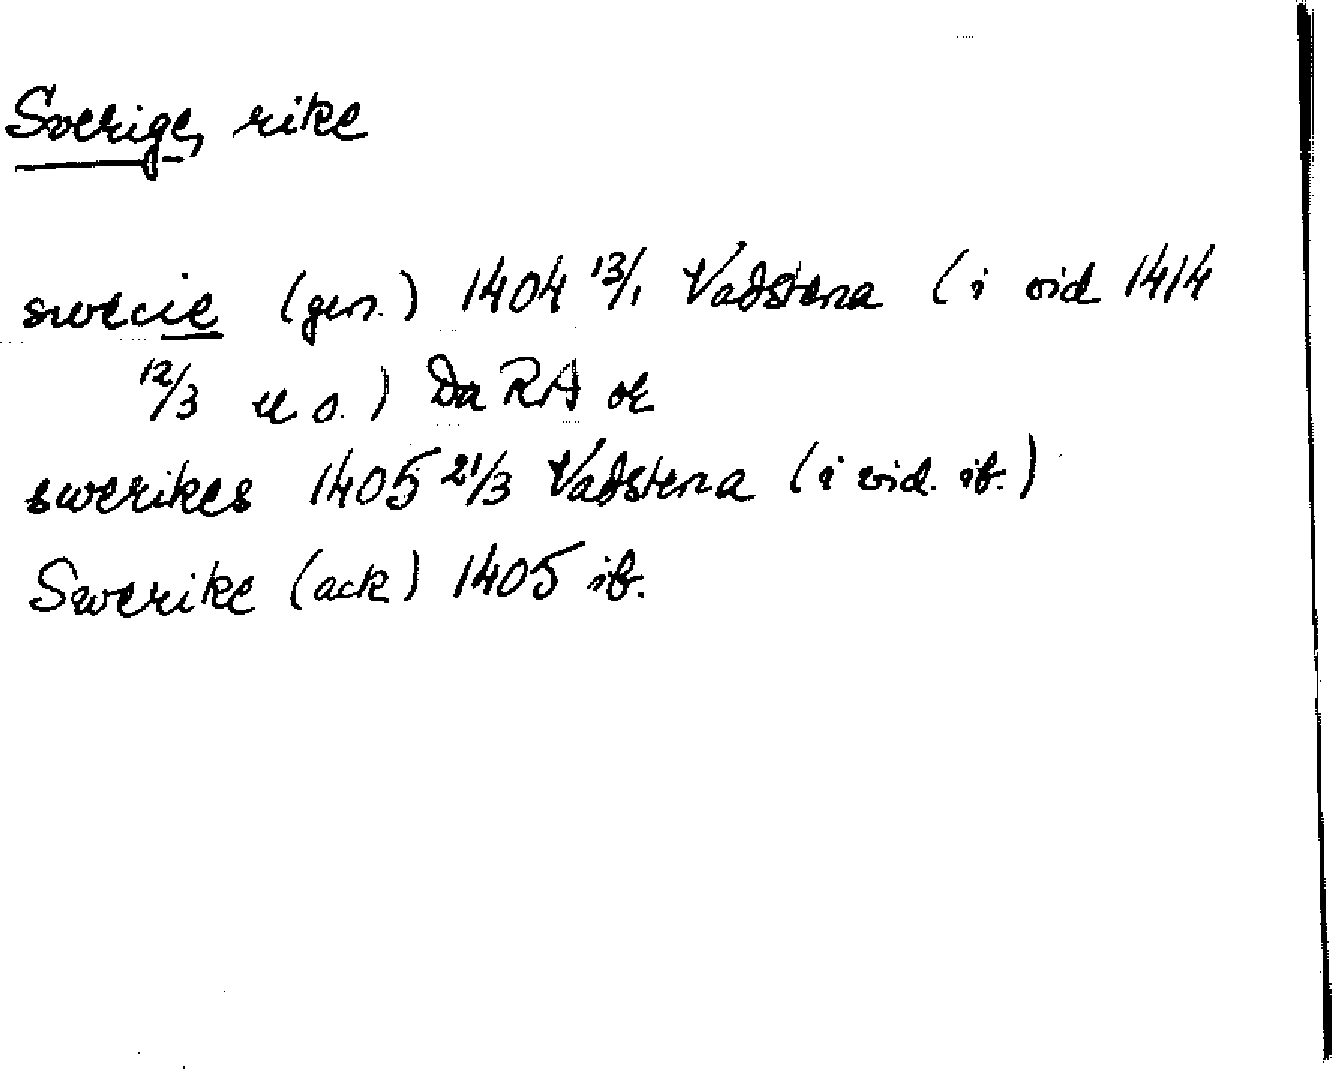 Sverige, rike
swecie (gen.) 1404 13/1 Vadstena (i vid 1414
12/3 u o.) Da RA or
swerikes 1405 21/3 Vadstena (i vid. ib.)
Swerike (ack) 1405 ib.